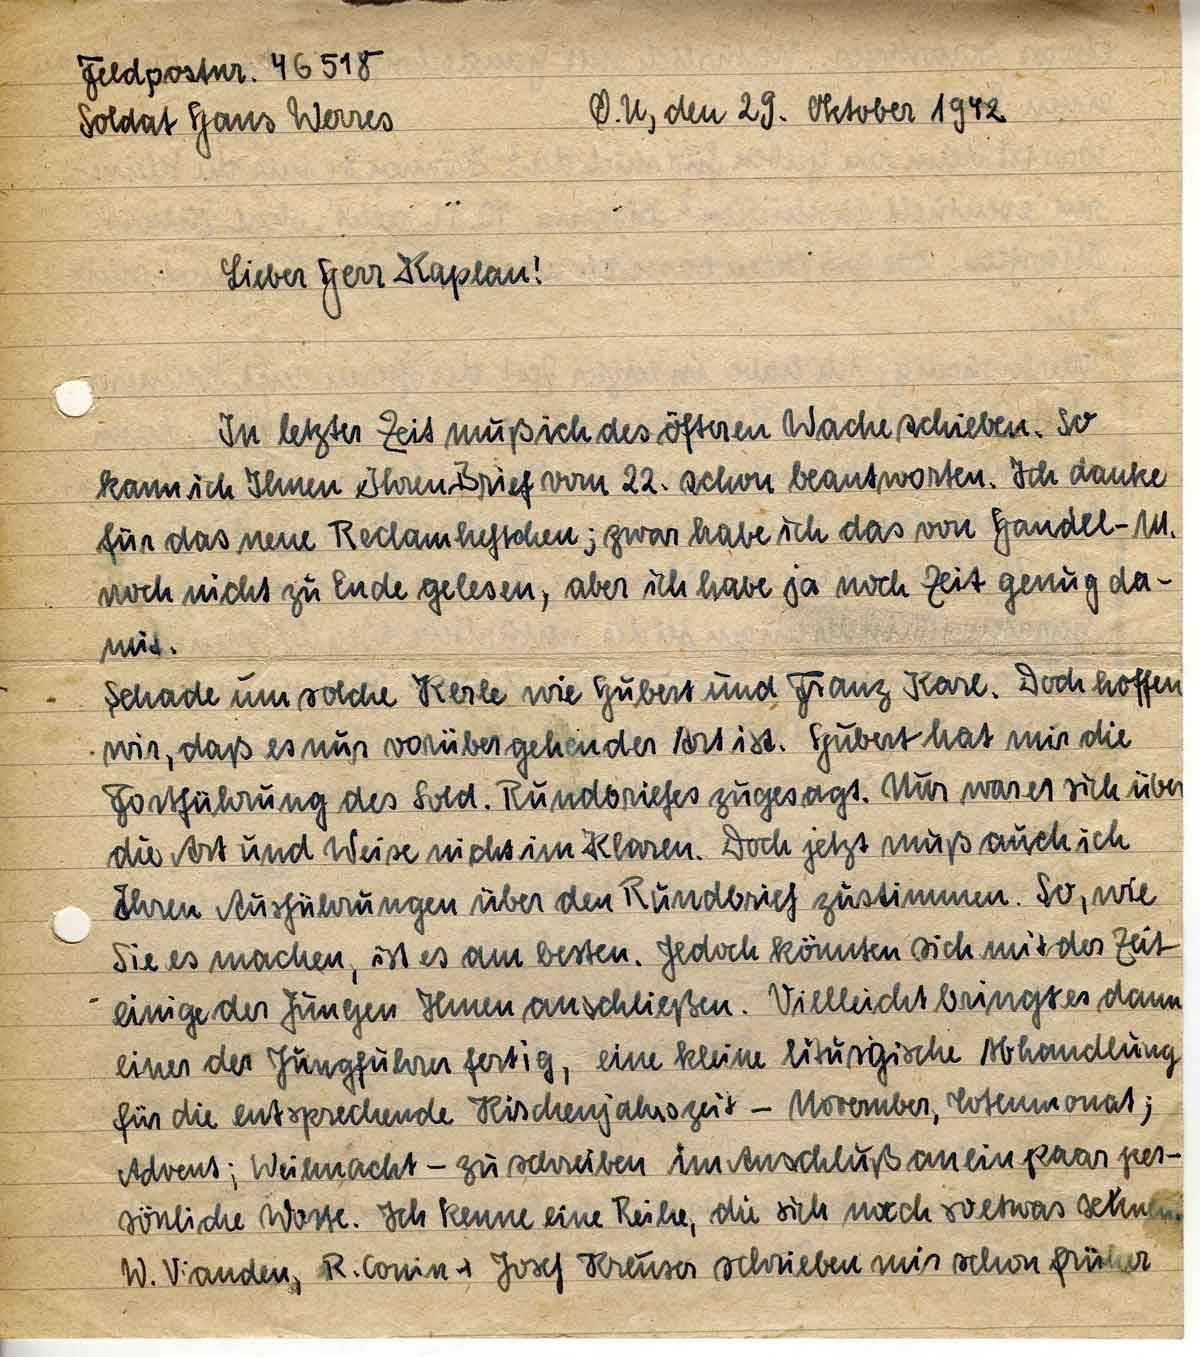 Feldpostnr. 46518
Soldat Hans Werres
O.U, den 29. Oktober 1942
Lieber Herr Kaplan!
In letzter Zeit muß ich des öfteren Wache schieben. So
kann ich Ihnen Ihren Brief vom 22. schon beantworten. Ich danke
für das neue Reclamheftchen; zwar habe ich das von Handel-M.
noch nicht zu Ende gelesen, aber ich habe ja noch Zeit genug da-
mit.
Schade um solche Kerle wie Hubert und Franz Karl. Doch hoffen
wir, daß es nur vorübergehender Art ist. Hubert hat mir die
Fortführung des Sold. Rundbriefes zugesagt. Nur war er sich über
die Art und Weise nicht im Klaren. Doch jetzt muß auch ich
Ihren Ausführungen über den Rundbrief zustimmen. So, wie
Sie es machen, ist es am besten. Jedoch könnten sich mit der Zeit
einige der Jungen Ihnen anschließen. Vielleicht bringt es dann
einer der Jungführer fertig, eine kleine liturgische Abhandlung
für die entsprechende Kirchenjahrszeit – November, Totenmonat;
Advent; Weihnacht – zu schreiben im Anschluß an ein paar per-
sönliche Worte. Ich kenne eine Reihe, die sich nach so etwas sehnen.
W. Vianden, R. Conin + Josef Kreuser schrieben mir schon früher